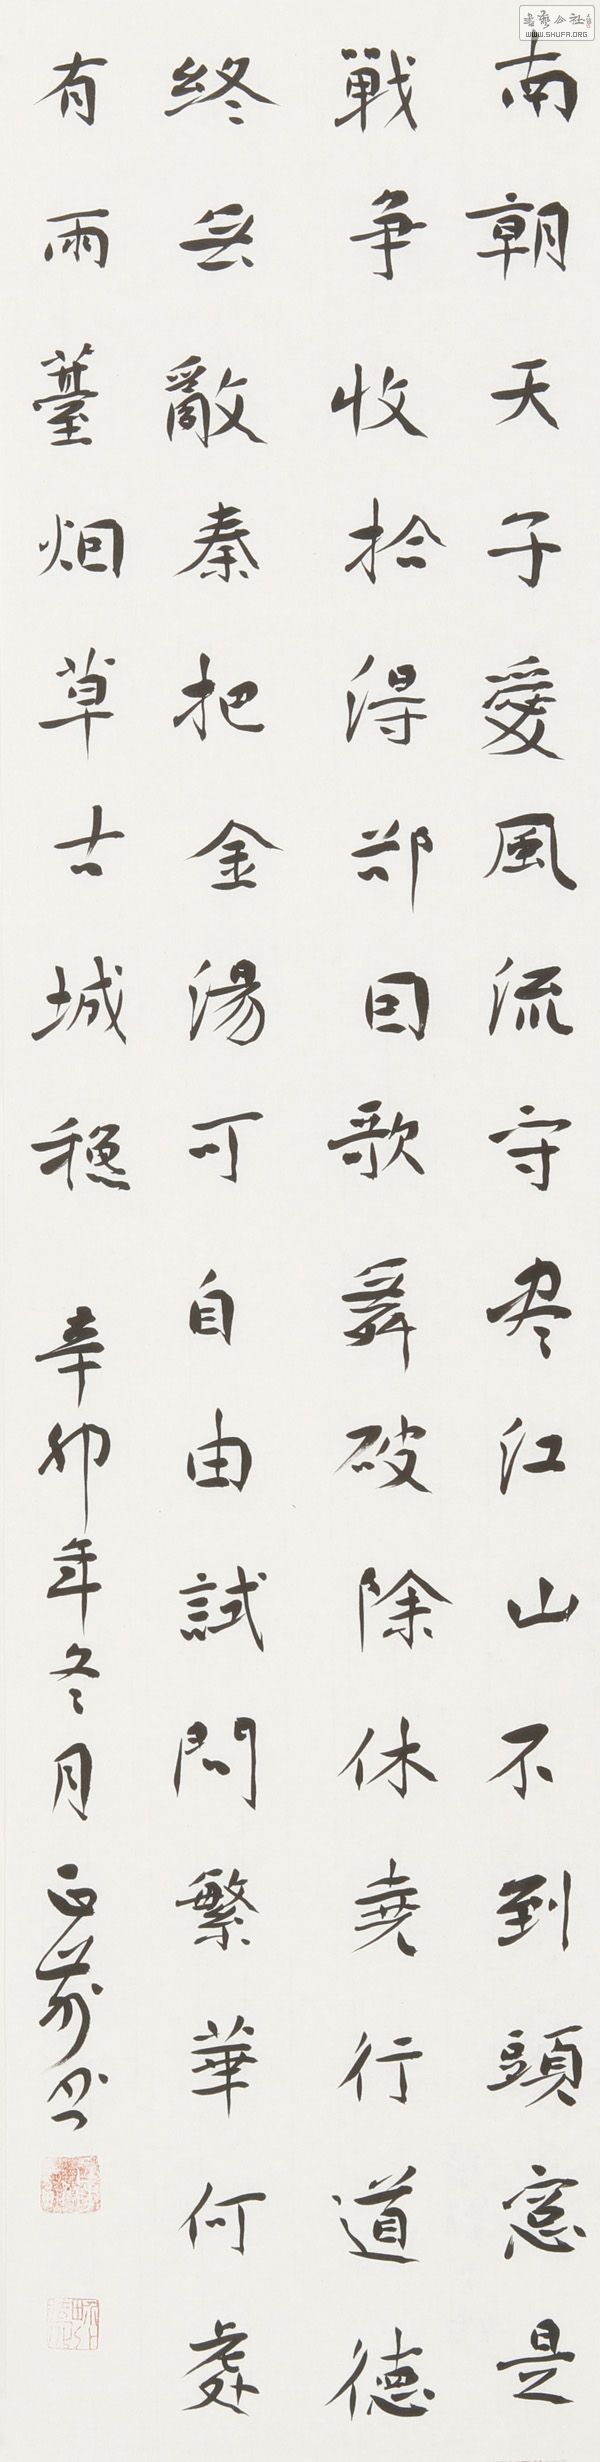 書藝公社
WWW.SHUFA.ORG
南朝天子愛風流守尽江山不到頭窓是
戰争收拾得却因歌舞破除休堯行道德
終无敵秦把金湯可自由試問繁華何處
有雨薹烟草古城穐 辛卯年冬月